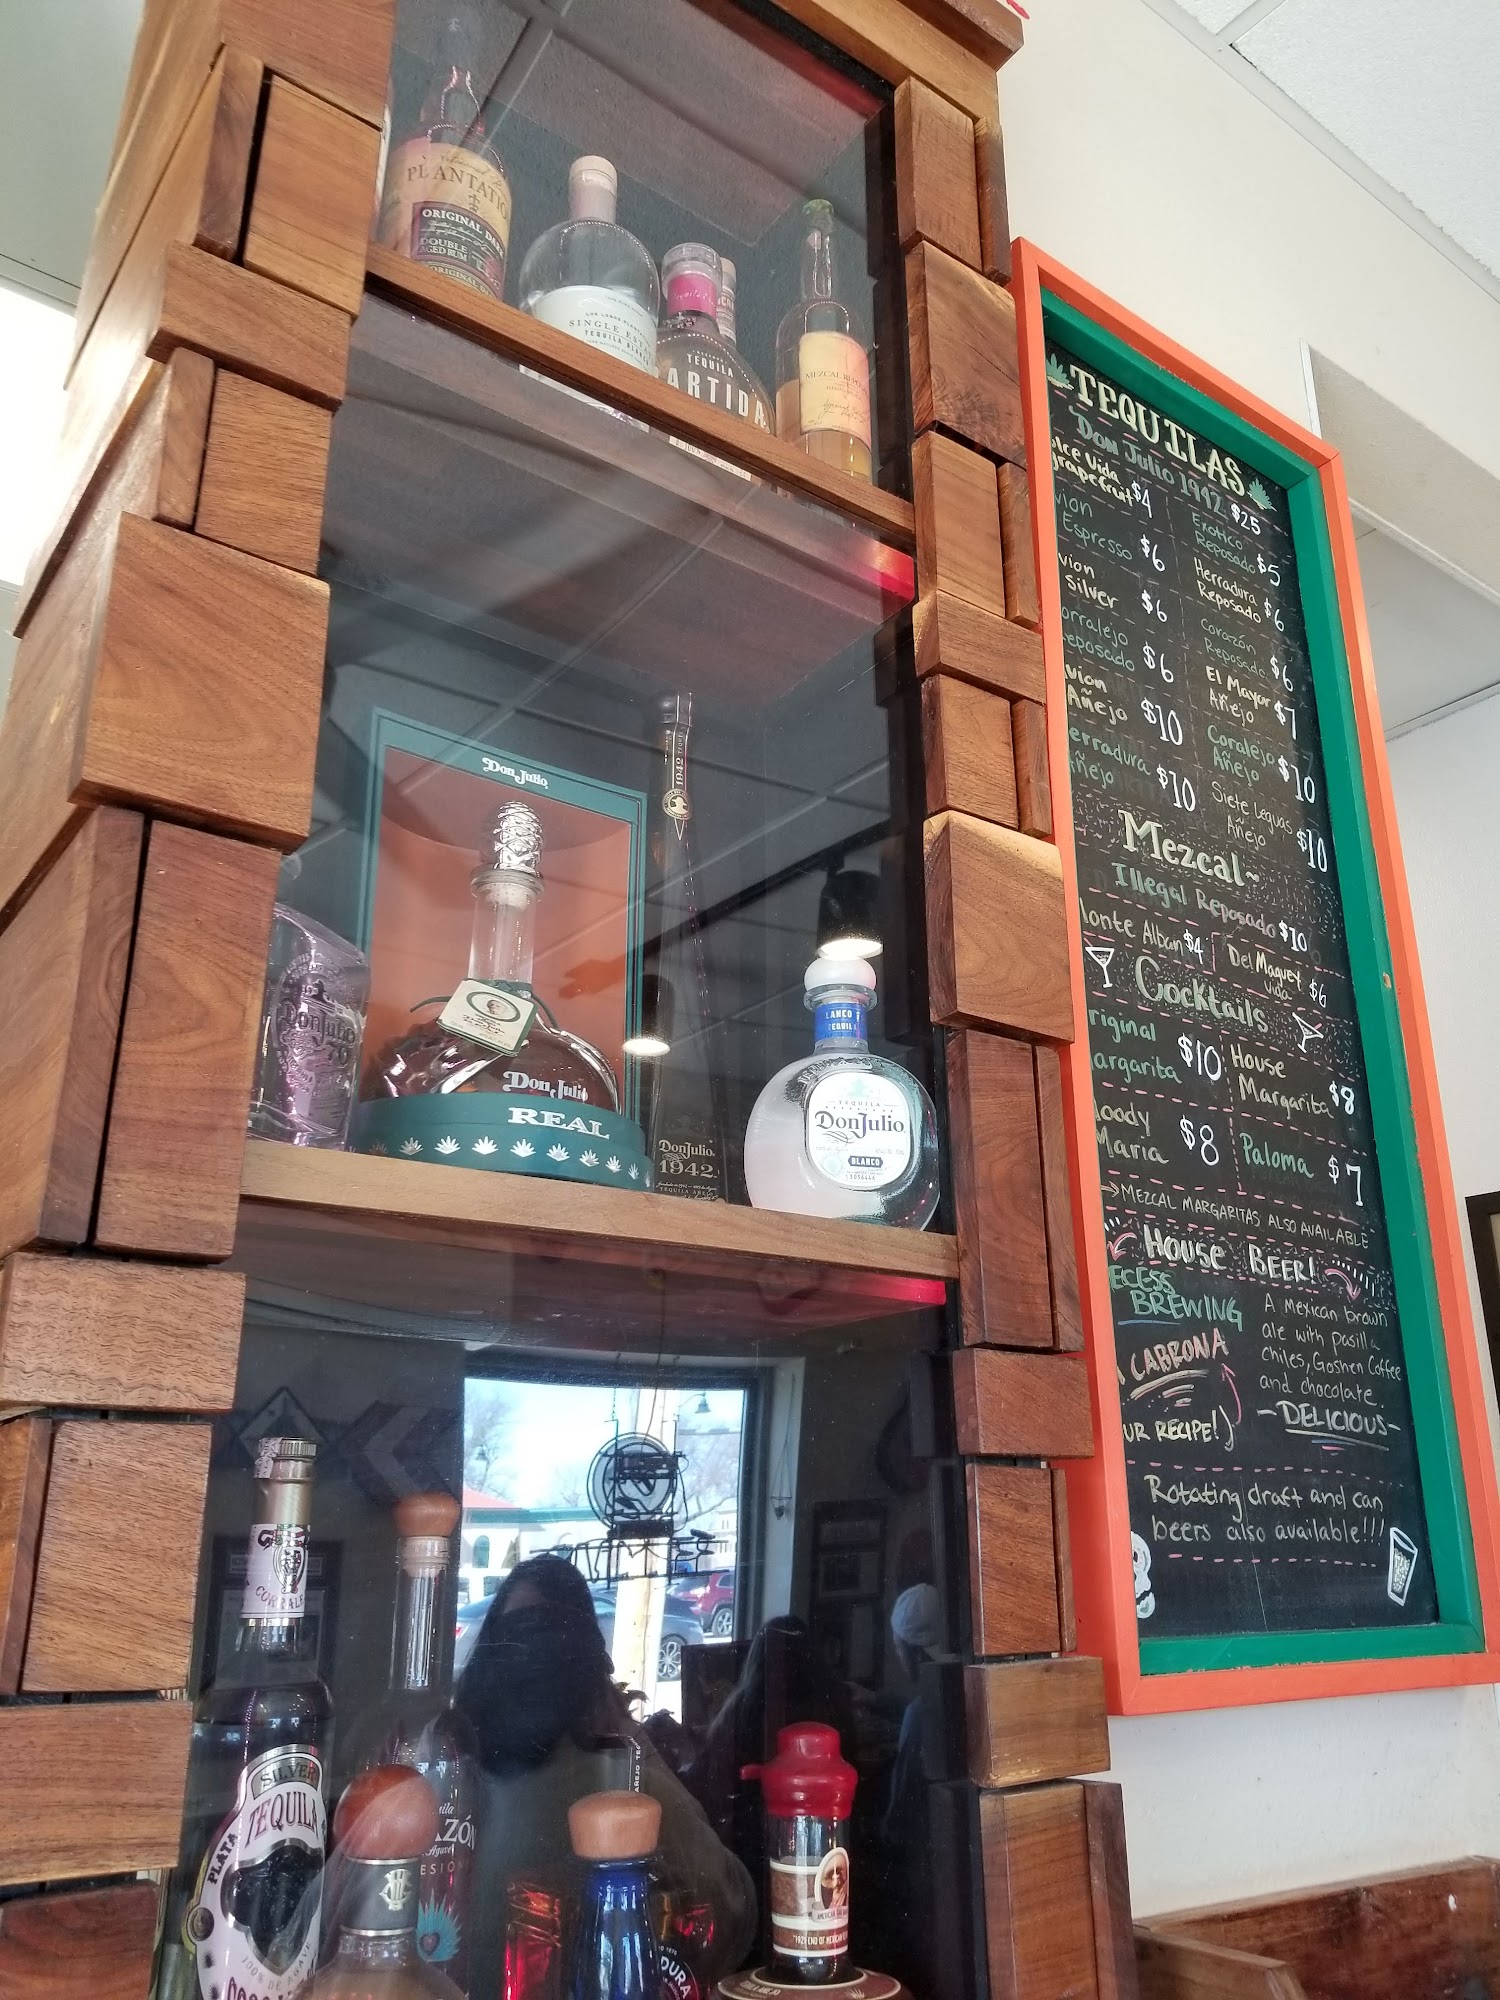 PLANTATIO
ORIGINAL DARK
DOUBLE
AGED RUM
ORIGINAL DA
SINGLE EST
TEQUILA BLAN
TEQUILA
ARTIDA
MEZCAL REPO
Don Julio
1942
Don Julio
70
Don Julio
REAL
DonJulio.
1942.
TEQUILA AÑEJO
LANCO
TEQUILA
TEQUILA
DonJulio
BLANCO
CORRALE
SILVER
TEQUILA
PLATA
100% DE AGAVE
AZÓN
Agave
ESION
AÑEJO TE
DURA
TEQUILAS
Don Julio 1942 $25
olce Vida
grapefruit $4
vion
Espresso $6
vion
Silver $6
orralejo
eposado $6
vion
Añejo $10
erradura
Añejo $10
Exotico
Reposado $5
Herradura
Reposado $6
Corazón
Reposado $6
El Mayor
Añejo $7
Coralejo
Añejo $10
Siete Leguas
Añejo $10
Mezcal~
Illegal Reposado $10
Monte Alban $4
Del Maguey
Vida $6
Cocktails
riginal
argarita $10
House
Margarita $8
loody
Maria $8
Paloma $7
→ MEZCAL MARGARITAS ALSO AVAILABLE
HOUSE BEER!
ECESS
BREWING
CABRONA
UR RECIPE!)
A Mexican brown
ale with pasilla
chiles, Goshen Coffee
and chocolate
-DELICIOUS-
Rotating draft and can
beers also available!!!